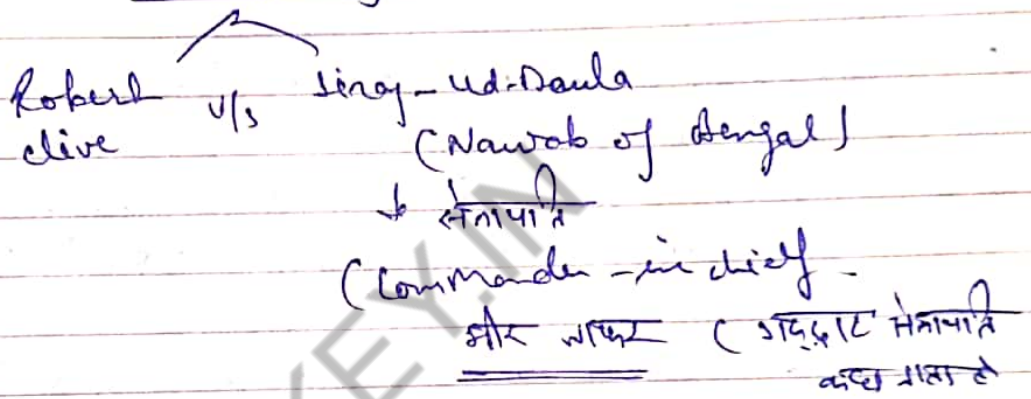 Robert v/s Siraj-ud-Daula
clive
(Nawab of Bengal)
↓ सेनापति
(Commander-in chief
मीर जाफर (गद्दार सेनापति
कहा जाता है
KEY.IN